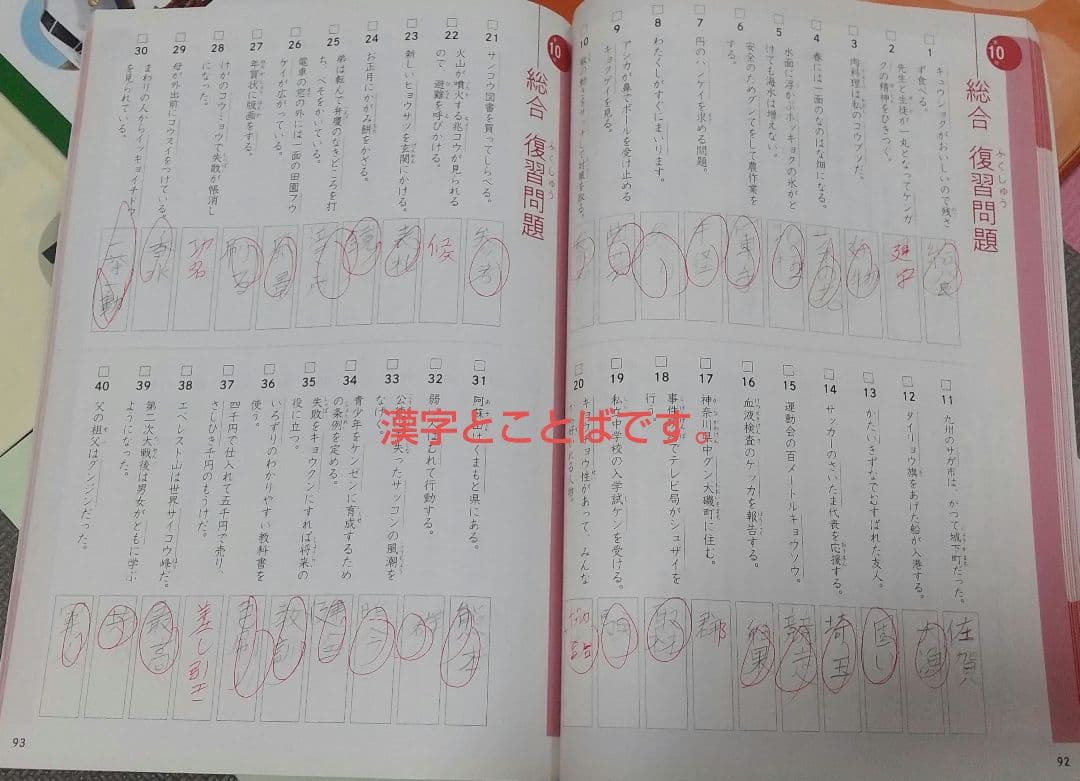 第10回
総合 復習問題
ふくしゅう
1 キュウショクがおいしいので残さず食べる。
2 先生と生徒が一丸となってケンガクの精神をひきつぐ。
3 肉料理は私のコウブツだ。
4 春には一面のなのはな畑になる。
5 水面に浮かぶホッキョクの氷がとけても海水は増えない。
6 安全のためグンてをして農作業をする。
7 円のハンケイを求める問題。
8 わたくしがすぐにまいります。
9 アシカが鼻でボールを受け止めるキョクゲイを見る。
10
11 九州のサガ市は、かつて城下町だった。
12 タイリョウ旗をあげた船が入港する。
13 かたいきずなでむすばれた友人。
14 サッカーのさいたま代表を応援する。
15 運動会の百メートルキョウソウ。
16 血液検査のケッカを報告する。
17 神奈川県中グン大磯町に住む。
18 事件の テレビ局がシュザイを行う。
19 私立中学校の入学試ケンを受ける。
20 キョウチョウ性があって、みんな
給食
建学
好物
半径
佐賀
大漁
固し
埼玉
競走
結果
郡
取材
験
協調
92
第10回
総合 復習問題
ふくしゅう
21 サンコウ図書を買ってしらべる。
22 火山が噴火する兆コウが見られるので、避難を呼びかける。
23 新しいヒョウサツを玄関にかける。
24 お正月にかがみ餅をかざる。
25 弟は転んで弁慶のなきどころを打ち、べそをかいている。
26 電車の窓の外には一面の田園フウケイが広がっている。
27 年賀状に版画をする。
28 けがのコウミョウで失敗が帳消しになった。
29 母が外出前にコウスイをつけている。
30 まわりの人からイッキョイチドウを見られている。
31 阿蘇 くまもと県にある。
32 弱 むれて行動する。
33 公 失ったサッコンの風潮をなげく。
34 青少年をケンゼンに育成するための条例を定める。
35 失敗をキョウクンにすれば将来の役に立つ。
36 いろずりのわかりやすい教科書を使う。
37 四千円で仕入れて五千円で売り、さしひき千円のもうけだ。
38 エベレスト山は世界サイコウ峰だ。
39 第二次大戦後は男女がともに学ぶようになった。
40 父の祖父はグンジンだった。
参考
候
表札
鏡
風景
刷る
功名
香水
一挙一動
熊本
健全
教訓
差し引き
最高
93
漢字とことばです。